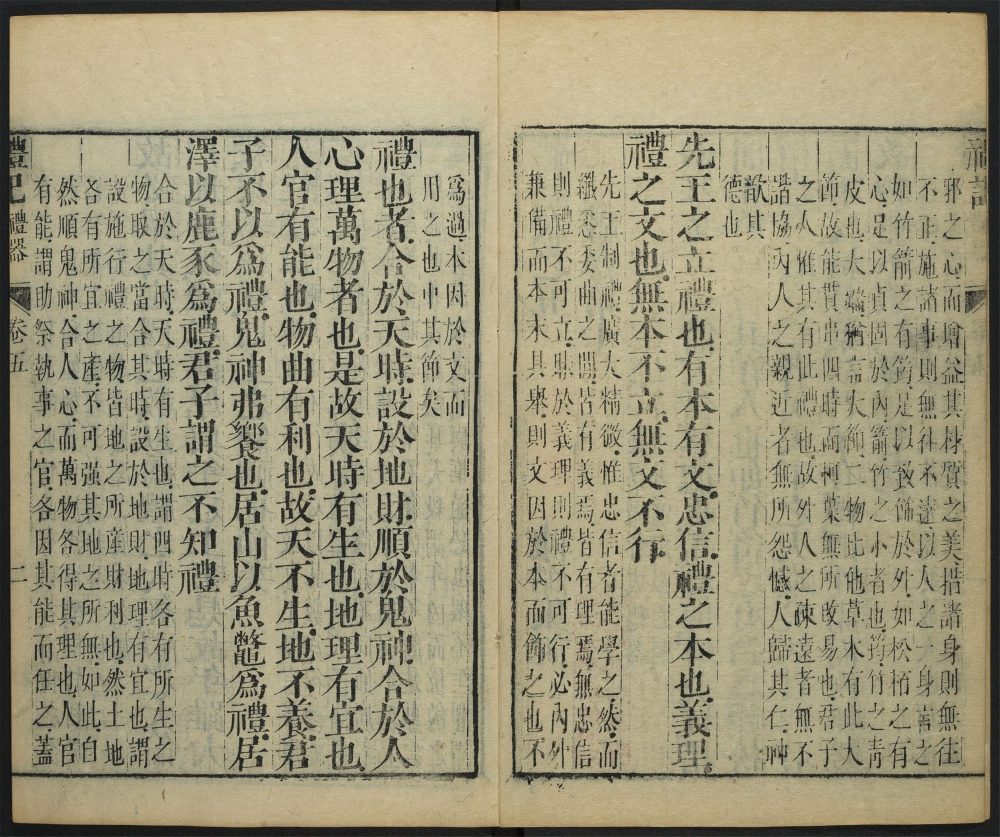 邪之心而增益其材質之美措諸身則無往
不正施諸事則無往不達以人之一身言之
如竹箭之有筠足以致飾於外如松栢之有
心足以貞固於內箭竹之小者也筠竹之靑
皮也大端猶言大節二物比他草木有此大
節故能貫串四時而柯葉無所改易也君子
之人惟其有此禮也故外人之疎遠者無不
諧協內人之親近者無所怨憾人歸其仁神
歆其
德也
先王之立禮也有本有文忠信禮之本也義理
禮之文也無本不立無文不行
先王制禮廣大精微惟忠信者能學之然而
纖悉委曲之間皆有義焉皆有理焉無忠信
則禮不可立昧於義理則禮不可行必內外
兼備而本末具舉則文因於本而飾之也不
爲過本因於文而
用之也中其節矣
禮也者合於天時設於地財順於鬼神合於人
心理萬物者也是故天時有生也地理有宜也
人官有能也物曲有利也故天不生地不養君
子不以爲禮鬼神弗饗也居山以魚鼈爲禮居
澤以鹿豕爲禮君子謂之不知禮
合於天時天時有生也謂四時各有所生之
物取之當合其時設於地財地理有宜也謂
設施行禮之物皆地之所産財利也然土地
各有所宜之產不可强其地之所無如此自
然順鬼神合人心而萬物各得其理也人官
有能謂助祭執事之官各因其能而任之蓋
禮記 禮器 卷五 二